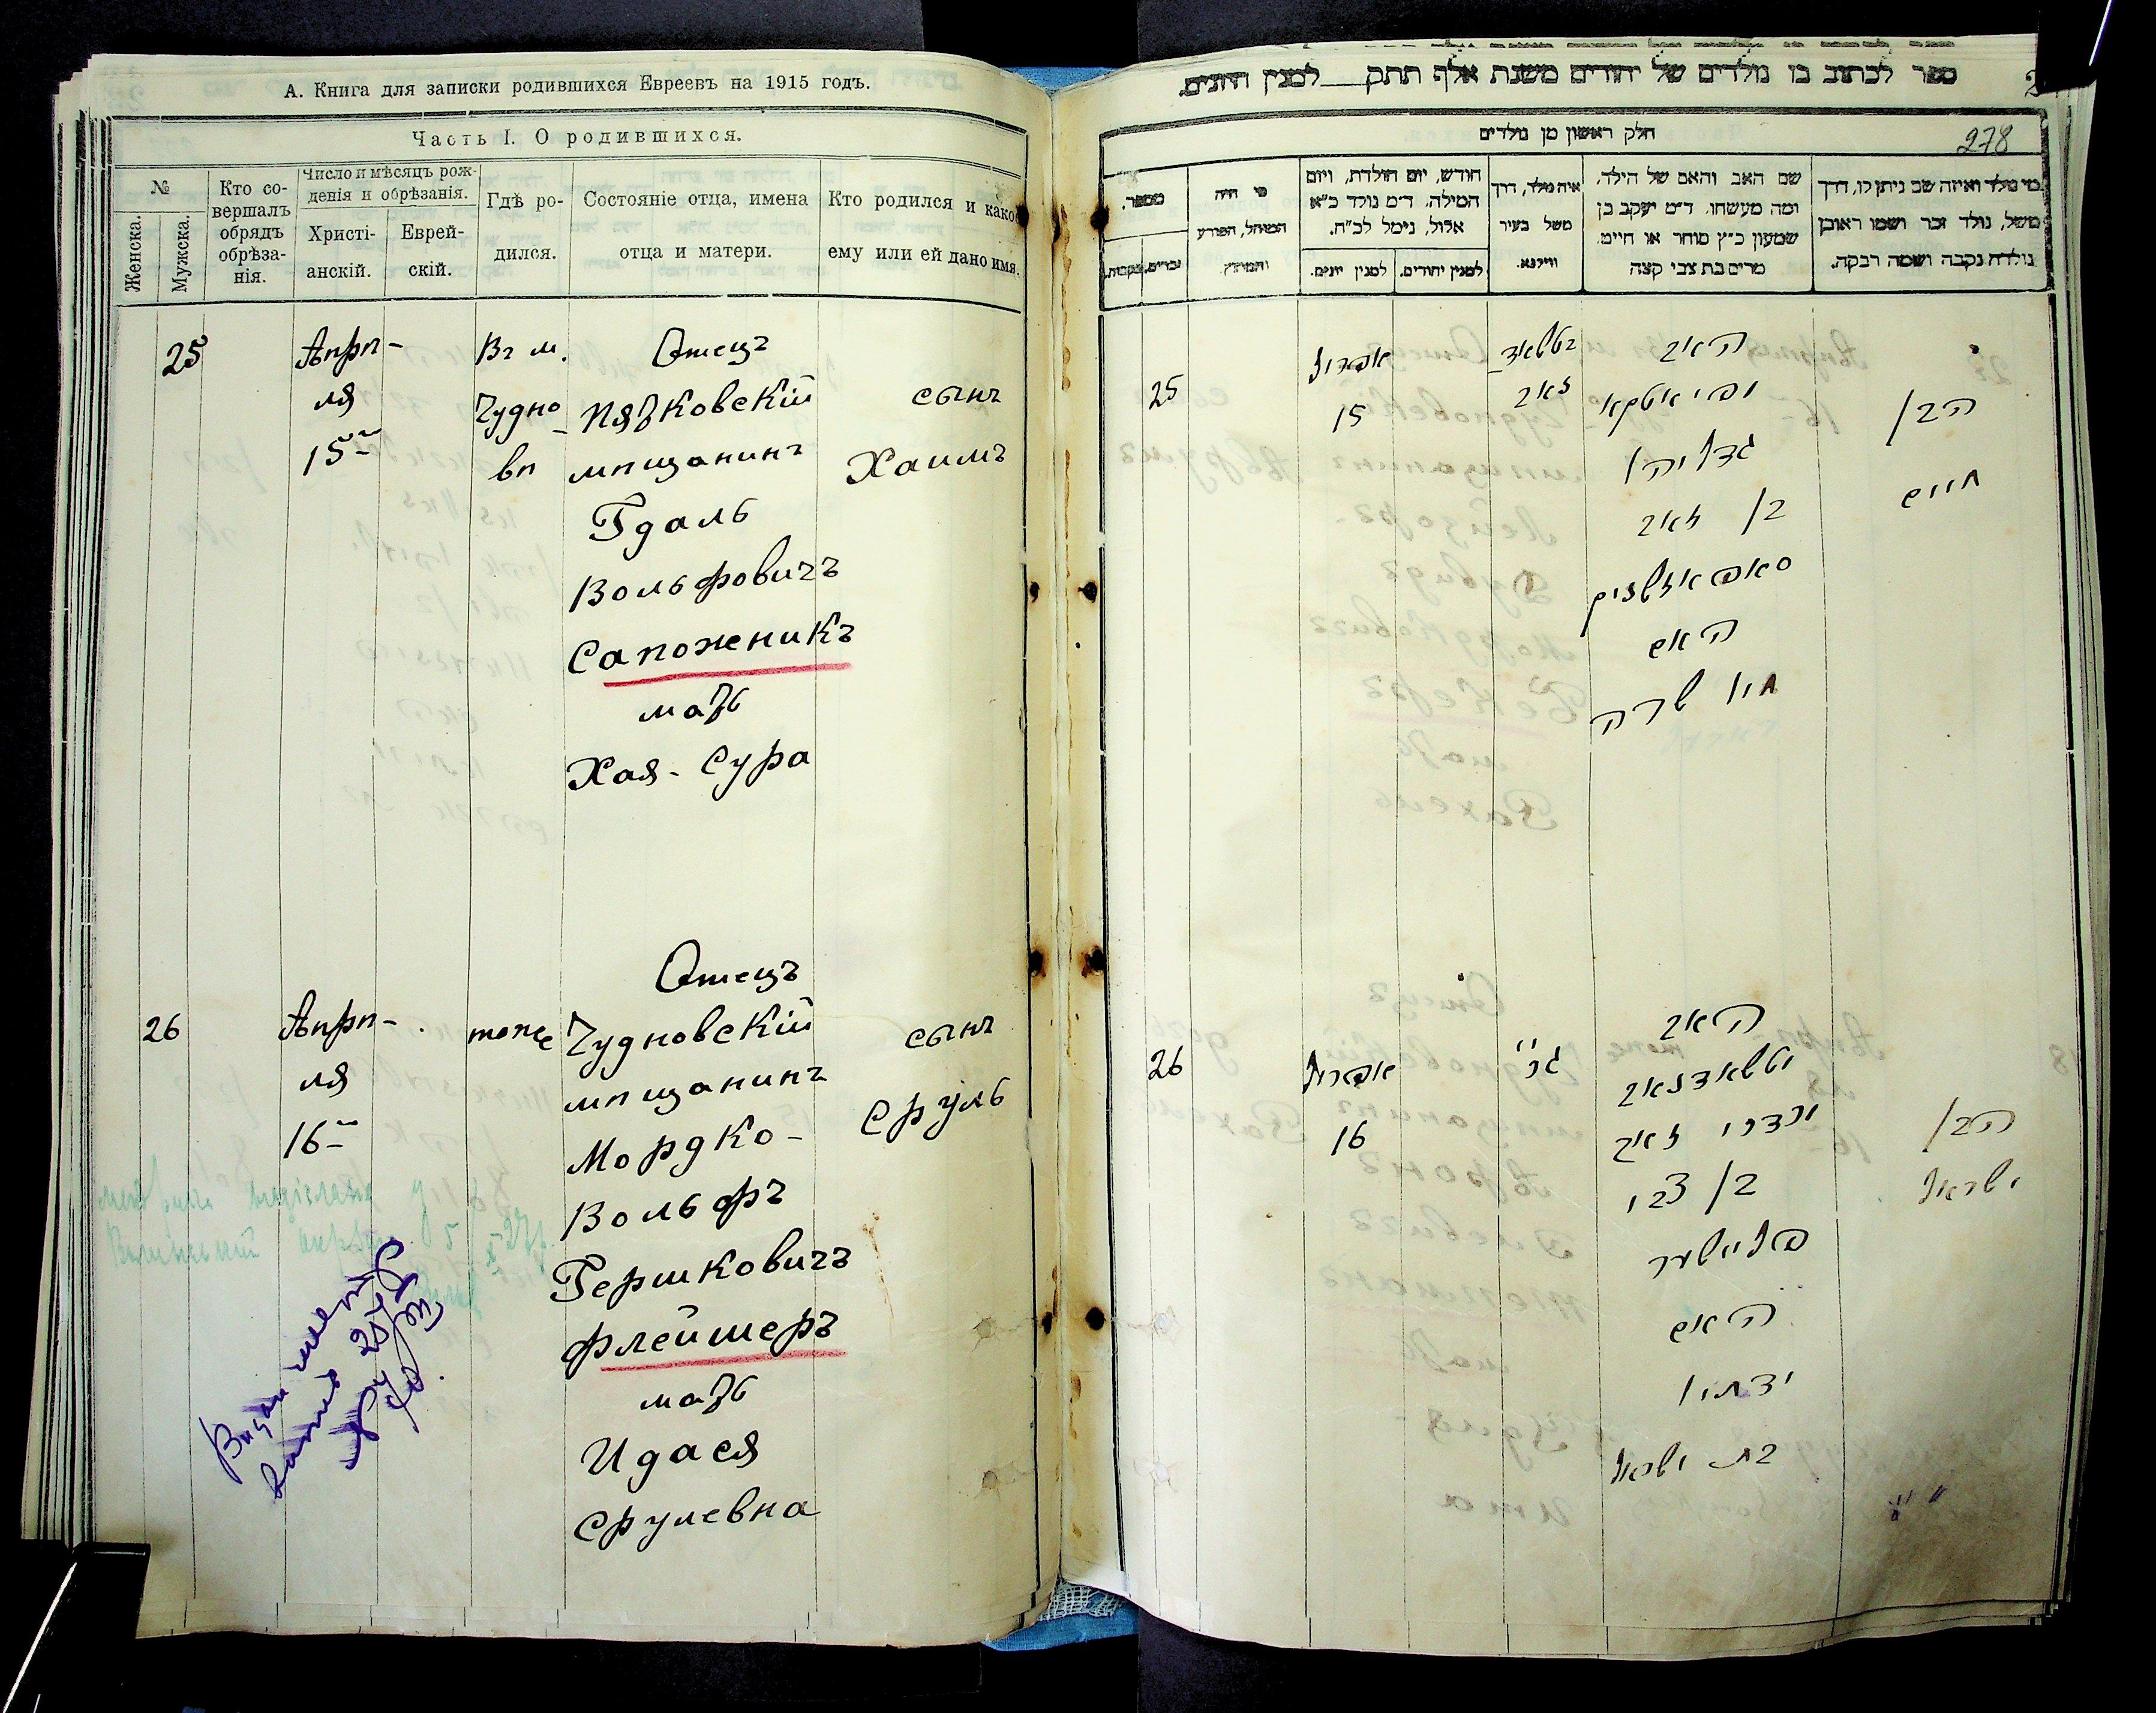 А. Книга для записки родившихся Евреевъ на 1915 годъ.
Часть I. О родившихся.
№
Женска.
Мужска.
Кто со-
вершалъ
обрядъ
обрѣза-
нія.
Число и мѣсяцъ рож-
денія и обрѣзанія.
Христі-
анскій.
Еврей-
скій.
Гдѣ ро-
дился.
Состояніе отца, имена
отца и матери.
Кто родился и како
ему или ей дано имя.
25
Апрѣ-
ля
15
Въ м.
Чудно-
вѣ
Отецъ
Пятковскій
мѣщанинъ
Гдаль
Вольфовичъ
Сапожникъ
мать
Хая-Сура
сынъ
Хаимъ
26
Апрѣ-
ля
16
тоже
Отецъ
Чудновскій
мѣщанинъ
Мордко-
Вольфъ
Гершковичъ
Флейшеръ
мать
Идася
Срулевна
сынъ
Сруль
ספר לכתוב בו נולדים של יהודים משנת אלף תתק למנין היונים.
278
חלק ראשון מן נולדים
מספר.
זכרים.
נקבות.
מי היה
המוהל, הפורע
והמוצץ.
חודש, יום הולדת, ויום
המילה. ד״מ נולד כ״א
אלול, נימל לכ״ח.
למנין יונים.
למנין יהודים.
איה נולד, דרך
משל בעיר
ווילנא.
שם האב והאם של הילד,
ומה מעשהו. ד״מ יעקב בן
שמעון כ״ץ סוחר או חיים.
מרים בת צבי קצה
מי נולד ואיזה שם ניתן לו, דרך
משל, נולד זכר ושמו ראובן
נולדה נקבה ושמה רבקה.
25
אפריל
15
האב
גדליהו
בן זאב
האם
חיה שרה
הבן
חיים
26
אפריל
16
האב
בן צבי
פליישער
האם
בת ישראל
הבן
ישראל